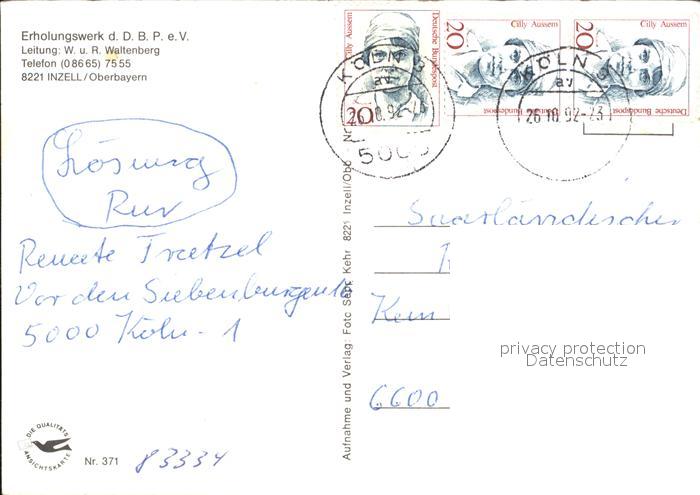 Erholungswerk d. D. B. P. e.V.
Leitung: W. u. R. Waltenberg
Telefon (0 86 65) 75 55
8221 INZELL / Oberbayern
Cilly Aussem
Deutsche Bundespost
20
Cilly Aussem
Deutsche Bundespost
20
Cilly Aussem
Deutsche Bundespost
20
KÖLN 3
av
26.10.92-
500
KÖLN 3
av
26.10.92-23
Lösung
Ruv
Renate Tratzel
Vor den Siebenburgen
5000 Köln - 1
Saarländischer
Kem
6600
privacy protection
Datenschutz
Aufnahme und Verlag: Foto Sepp Kehr 8221 Inzell/Obb. Nr.
DIE QUALITÄTS
ANSICHTSKARTE
Nr. 371
83334